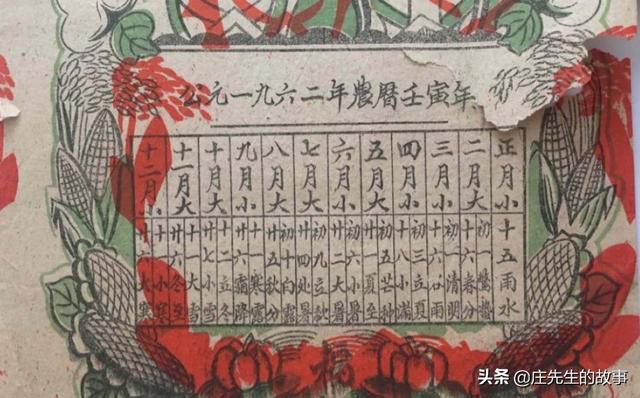 公元一九六二年農曆壬寅年
正月小
十五雨水
二月大
初一驚蟄
十六春分
三月小
初一清明
十六谷雨
四月小
初三立夏
十八小滿
五月大
初五芒种
廿一夏至
六月小
初六小暑
廿二大暑
七月大
初九立秋
廿四处暑
八月大
初十白露
廿五秋分
九月小
十一寒露
廿六霜降
十月大
十二立冬
廿七小雪
十一月大
十一大雪
廿六冬至
十二月小
十一小寒
廿六大寒
头条 @庄先生的故事